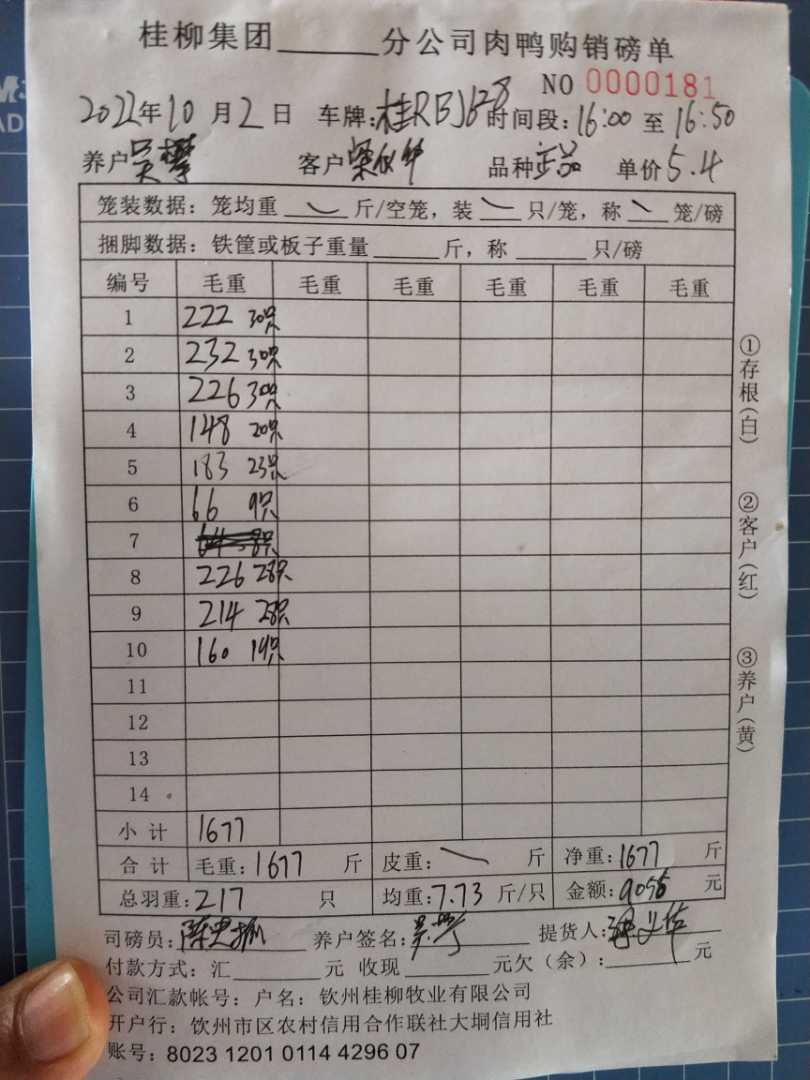 桂柳集团______分公司肉鸭购销磅单
NO 0000181
2022年10月2日 车牌:桂RBJ628 时间段:16:00 至 16:50
养户吴攀 客户 品种正品 单价5.4
笼装数据：笼均重 ＼ 斤/空笼，装 ＼ 只/笼，称 ＼ 笼/磅
捆脚数据：铁筐或板子重量______斤，称______只/磅
编号 毛重 毛重 毛重 毛重 毛重 毛重
1 222 30只
2 232 30只
3 226 30只
4 148 20只
5 183 23只
6 66 9只
7
8 226 28只
9 214 28只
10 160 19只
11
12
13
14
小计 1677
合计 毛重:1677 斤 皮重: ＼ 斤 净重:1677 斤
总羽重:217 只 均重:7.73 斤/只 金额:9056 元
司磅员: 养户签名:吴攀 提货人:
付款方式：汇______元 收现______元欠（余）:______元
公司汇款帐号：户名：钦州桂柳牧业有限公司
开户行：钦州市区农村信用合作联社大垌信用社
账号：8023 1201 0114 4296 07
①存根(白)
②客户(红)
③养户(黄)